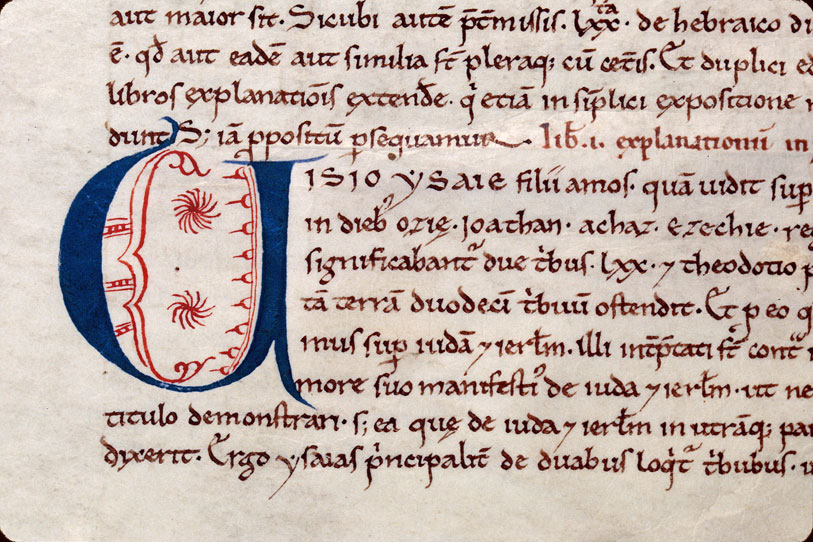 aut maior sit. Sicubi autē p̄t̄missis. lxx.ta de hebraico di
ē. qd̄ aut eadē aut similia st̄ pleraq; cū cet̄is. Et duplici ed
libros explanatiōis extende. q̇ etiā in sīplici expositione
dunt S; iā ꝓpositū ꝑsequamur lib̄.i. explanationū in
UISIO YSAIE filii amos. quā uidit suꝑ
in dieb; ozię. Joathan. achaz. Ezechie. re
significabant᷑ due t̄bus. lxx. ⁊ theodotio
tā terrā duodecī t̄buū ostendit. Et p eo q
mus suꝑ iudā ⁊ ierl̄m. illi int̄p̄tati st̄ cont᷑
more suo manifesti᷒ de iuda ⁊ ierl̄m. ut ne
titulo demonstrari. s; ea quę de iuda ⁊ ierl̄m in utrāq; pa
dyxerit. Ergo ysaias p̄ncipalit̄ de duabus loq̇t᷑ t̄bubus.